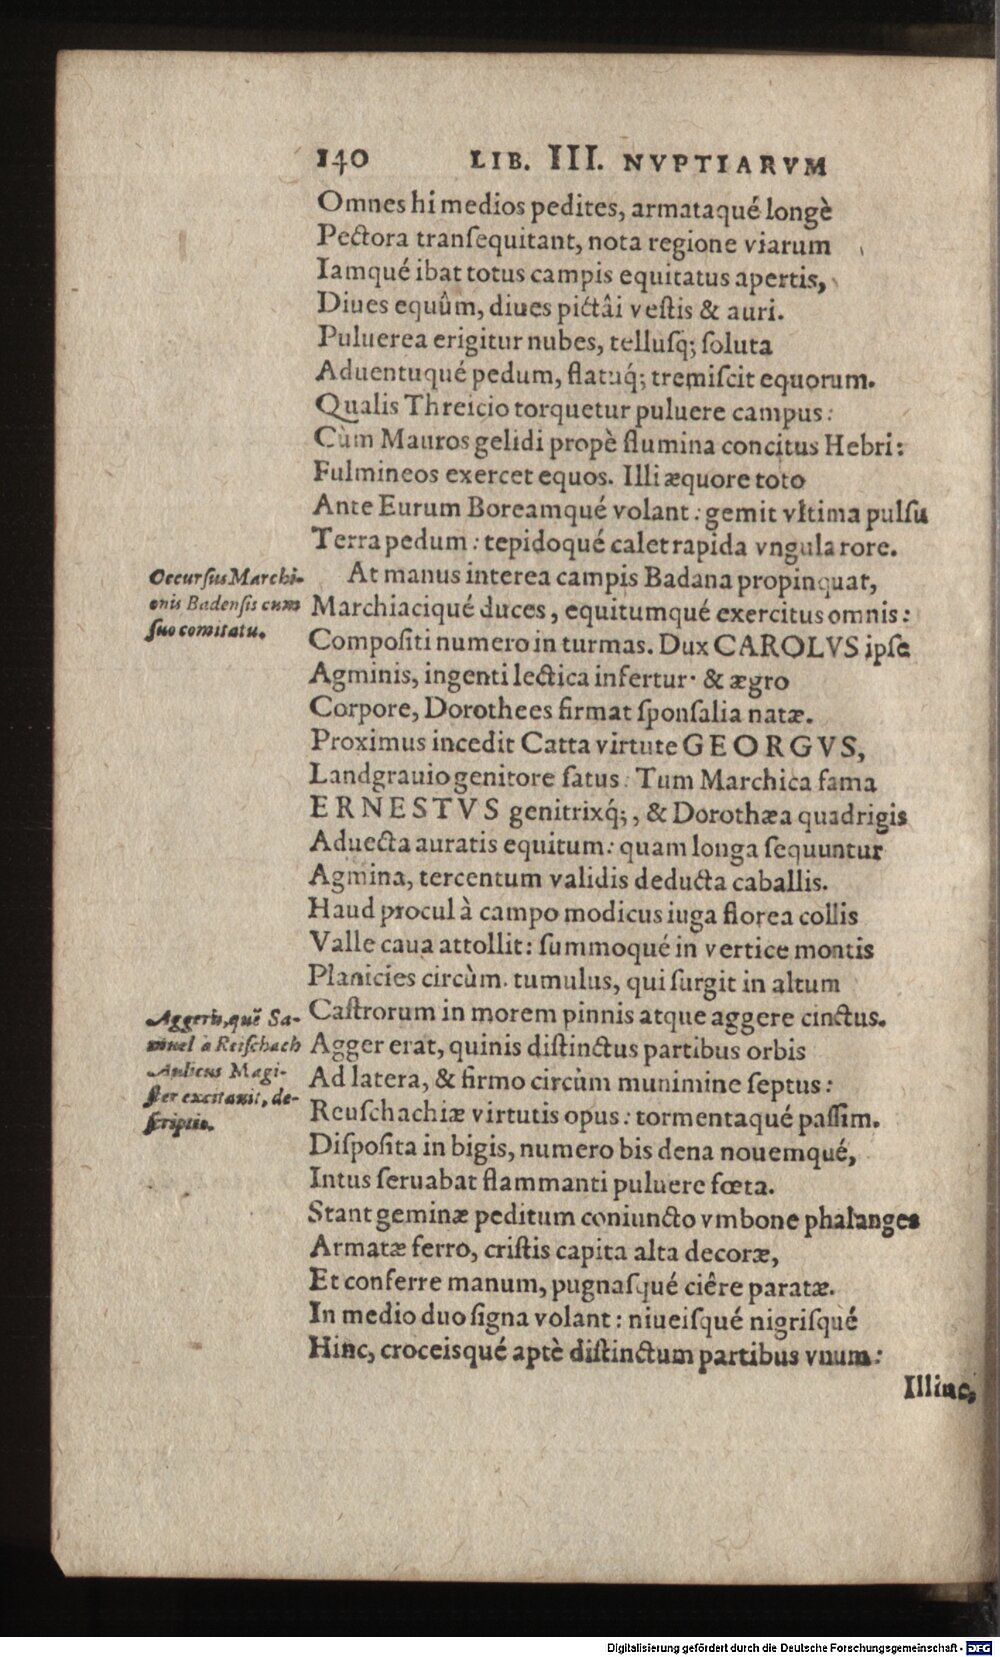 140 LIB. III. NVPTIARVM
Omnes hi medios pedites, armataqué longè
Pectora tranſequitant, nota regione viarum
Iamqué ibat totus campis equitatus apertis,
Diues equûm, diues pictâi veſtis & auri.
Puluerea erigitur nubes, tellusq́; ſoluta
Aduentuqué pedum, flatuq́; tremiſcit equorum.
Qualis Threicio torquetur puluere campus:
Cùm Mauros gelidi propè flumina concitus Hebri:
Fulmineos exercet equos. Illi æquore toto
Ante Eurum Boreamqué volant: gemit vltima pulſu
Terra pedum: tepidoqué calet rapida vngula rore.
Occurſus Marchi-
onis Badenſis cum
ſuo comitatu.
At manus interea campis Badana propinquat,
Marchiaciqué duces, equitumqué exercitus omnis:
Compoſiti numero in turmas. Dux CAROLVS ipſe
Agminis, ingenti lectica infertur· & ægro
Corpore, Dorothees firmat ſponſalia natæ.
Proximus incedit Catta virtute GEORGVS,
Landgrauio genitore ſatus. Tum Marchica fama
ERNESTVS genitrixq́;, & Dorothæa quadrigis
Aduecta auratis equitum: quam longa ſequuntur
Agmina, tercentum validis deducta caballis.
Haud procul à campo modicus iuga florea collis
Valle caua attollit: ſummoqué in vertice montis
Planicies circùm. tumulus, qui ſurgit in altum
Caſtrorum in morem pinnis atque aggere cinctus.
Aggeris, quẽ Sa-
muel a Reiſchach
Aulicus Magi-
ſter excitauit, de-
ſcriptio.
Agger erat, quinis diſtinctus partibus orbis
Ad latera, & firmo circùm munimine ſeptus:
Reuſchachiæ virtutis opus: tormentaqué paſſim.
Diſpoſita in bigis, numero bis dena nouemqué,
Intus ſeruabat flammanti puluere fœta.
Stant geminæ peditum coniuncto vmbone phalanges
Armatæ ferro, criſtis capita alta decoræ,
Et conferre manum, pugnaſqué ciêre paratæ.
In medio duo ſigna volant: niueiſqué nigriſqué
Hinc, croceisqué aptè diſtinctum partibus vnum:
Illinc,
Digitalisierung gefördert durch die Deutsche Forschungsgemeinschaft - DFG